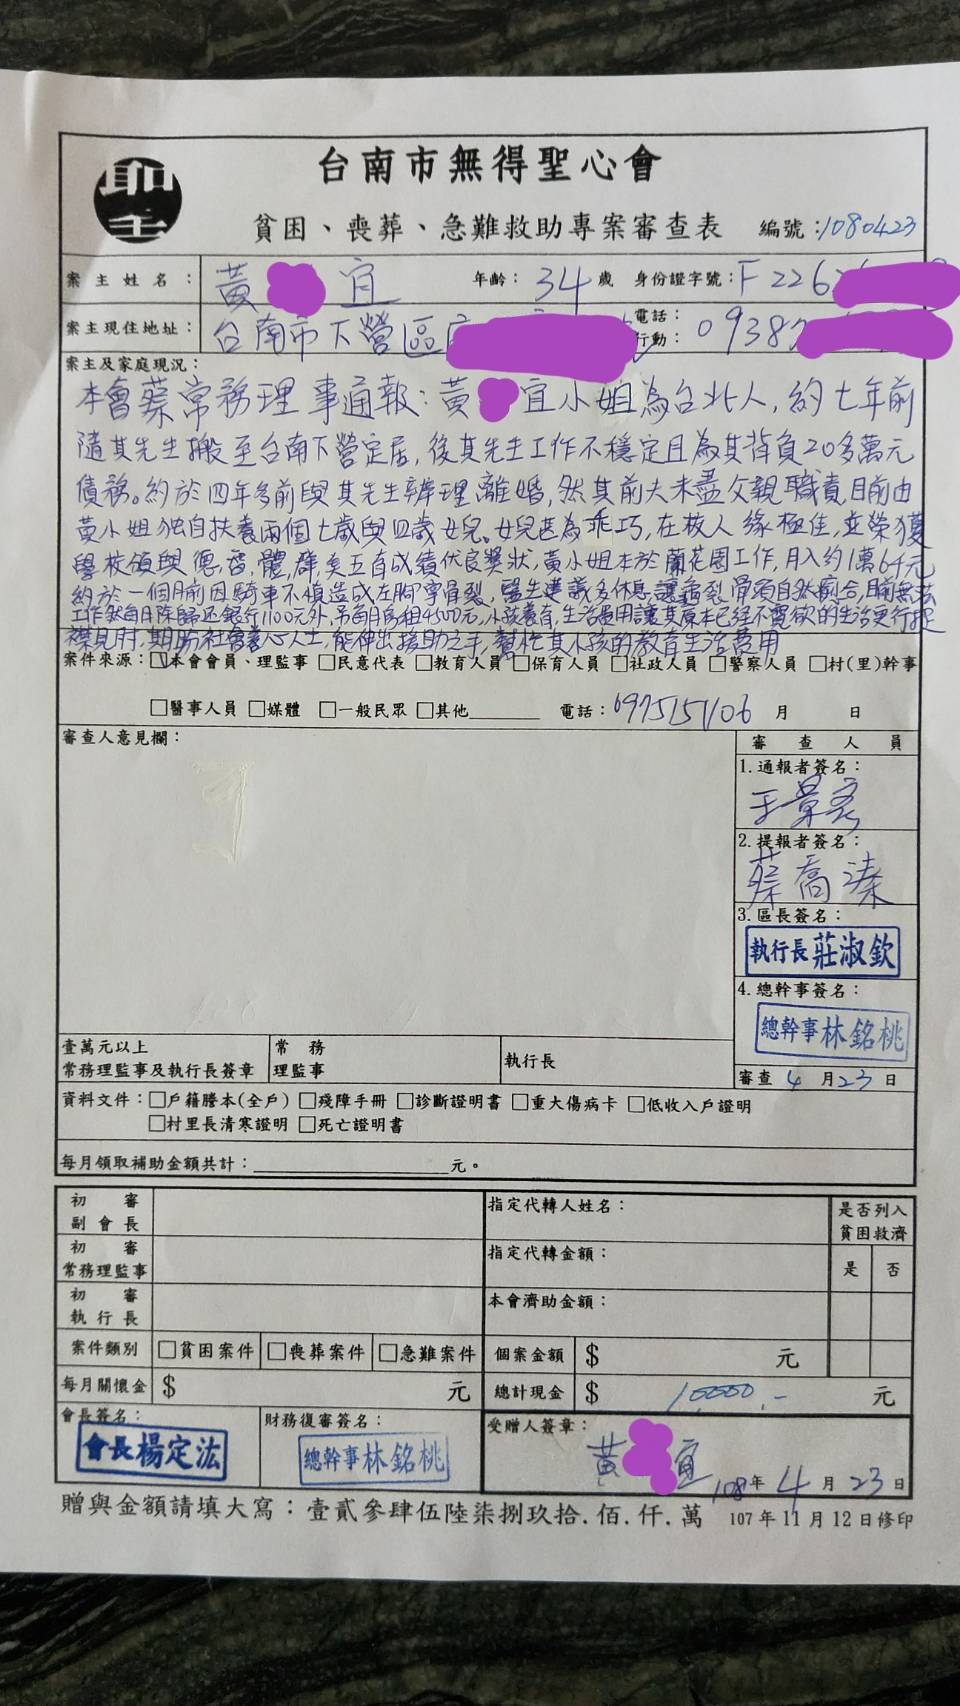 聖
台南市無得聖心會
貧困、喪葬、急難救助專案審查表 編號:1080423
案主姓名： 黃 宜 年齡：34歲 身份證字號：F226
案主現住地址： 台南市下營區 電話： 行動：0938
案主及家庭現況：
本會蔡常務理事通報：黃 宜小姐為台北人，約七年前
隨其先生搬至台南下營定居，後其先生工作不穩定且為其背負20多萬元
債務。約於四年多前與其先生辦理離婚，然其前夫未盡父親職責，目前由
黃小姐独自扶養兩個七歲與四歲女兒。女兒甚為乖巧，在校人緣極佳，並榮獲
學校頒與德、智、體、群、美五育成績优良獎狀，黃小姐本於蘭花園工作，月入約1萬6千元
約於一個月前因騎車不慎造成左胸骨裂，醫生建議多休息讓龜裂骨頭自然癒合，目前無法
工作然每月除歸还銀行1100元外，另每月房租4500元，小孩養育，生活費用讓其原本已經不寬欲的生活更行捉
襟見肘，期盼社會善心人士，能伸出援助之手，幫忙其小孩的教育生活費用
案件來源：☑本會會員、理監事 □民意代表 □教育人員 □保育人員 □社政人員 □警察人員 □村(里)幹事
□醫事人員 □媒體 □一般民眾 □其他 電話：0975151106 月 日
審查人意見欄：
審查人員
1.通報者簽名：
王景
2.提報者簽名：
蔡喬溱
3.區長簽名：
執行長 莊淑欽
4.總幹事簽名：
總幹事 林銘桃
審查 4月23日
壹萬元以上
常務理監事及執行長簽章
常務
理監事
執行長
資料文件：□戶籍謄本(全戶) □殘障手冊 □診斷證明書 □重大傷病卡 □低收入戶證明
□村里長清寒證明 □死亡證明書
每月領取補助金額共計： 元。
初審
副會長
初審
常務理監事
初審
執行長
指定代轉人姓名：
指定代轉金額：
本會濟助金額：
是否列入
貧困救濟
是 否
案件類別 □貧困案件 □喪葬案件 □急難案件 個案金額 $ 元
每月關懷金 $ 元 總計現金 $ 10000.- 元
會長簽名：
會長 楊定浤
財務復審簽名：
總幹事 林銘桃
受贈人簽章：
黃 宜
108年4月23日
贈與金額請填大寫：壹貳參肆伍陸柒捌玖拾.佰.仟.萬 107年11月12日修印